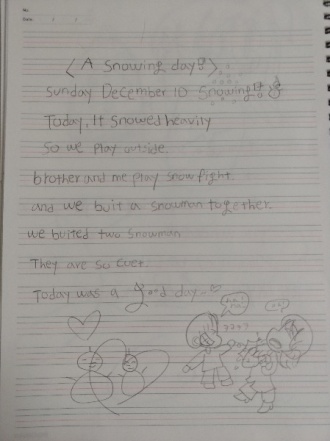 No.
Date
< A snowing day! >
Sunday December 10 Snowing
Today, It snowed heavily
So we play outside.
brother and me play snow fight.
and we buit a snowman together.
we buited two snowman
They are so cute.
Today was a good day~♡